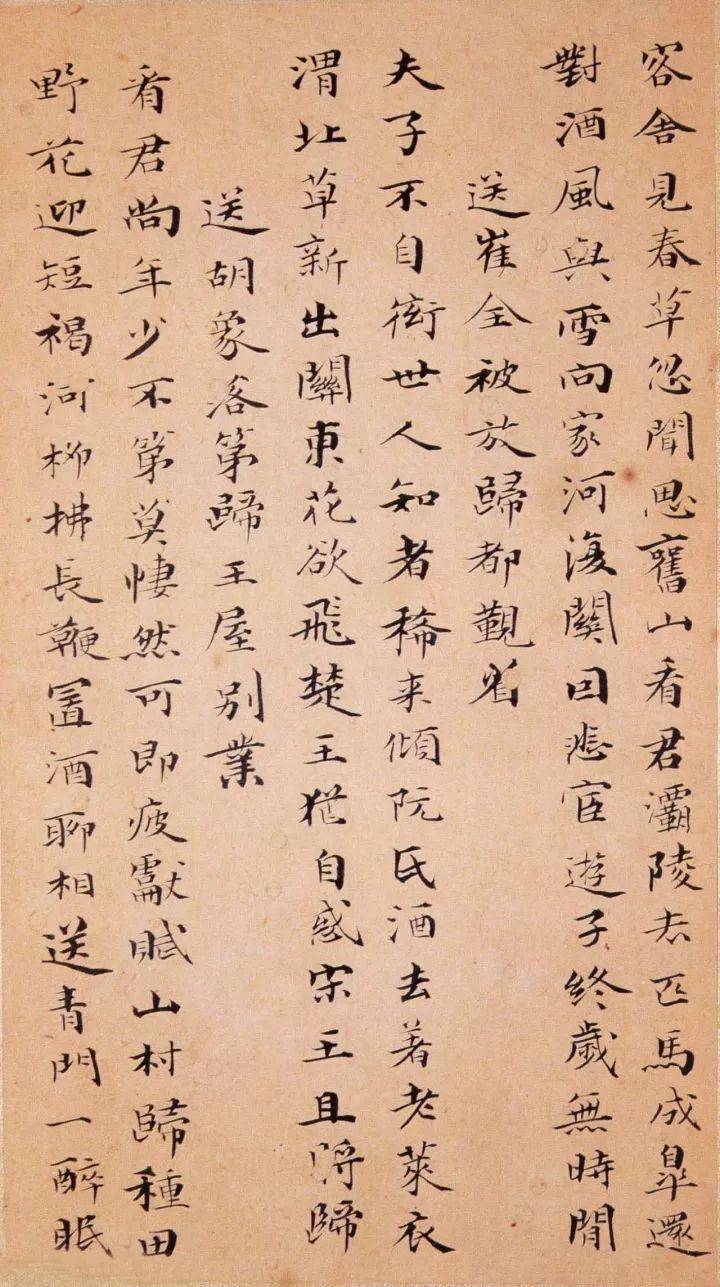 客舍見春草忽聞思舊山看君灞陵去匹馬成皐還
對酒風與雪向家河復關因悲宦遊子終歲無時閒
送崔全被放歸都覲省
夫子不自衒世人知者稀来傾阮氏酒去著老萊衣
渭北草新出關東花欲飛楚王猶自惑宋王且將歸
送胡象落第歸王屋別業
看君尚年少不第莫悽然可即疲獻賦山村歸種田
野花迎短褐河柳拂長鞭置酒聊相送青門一醉眠